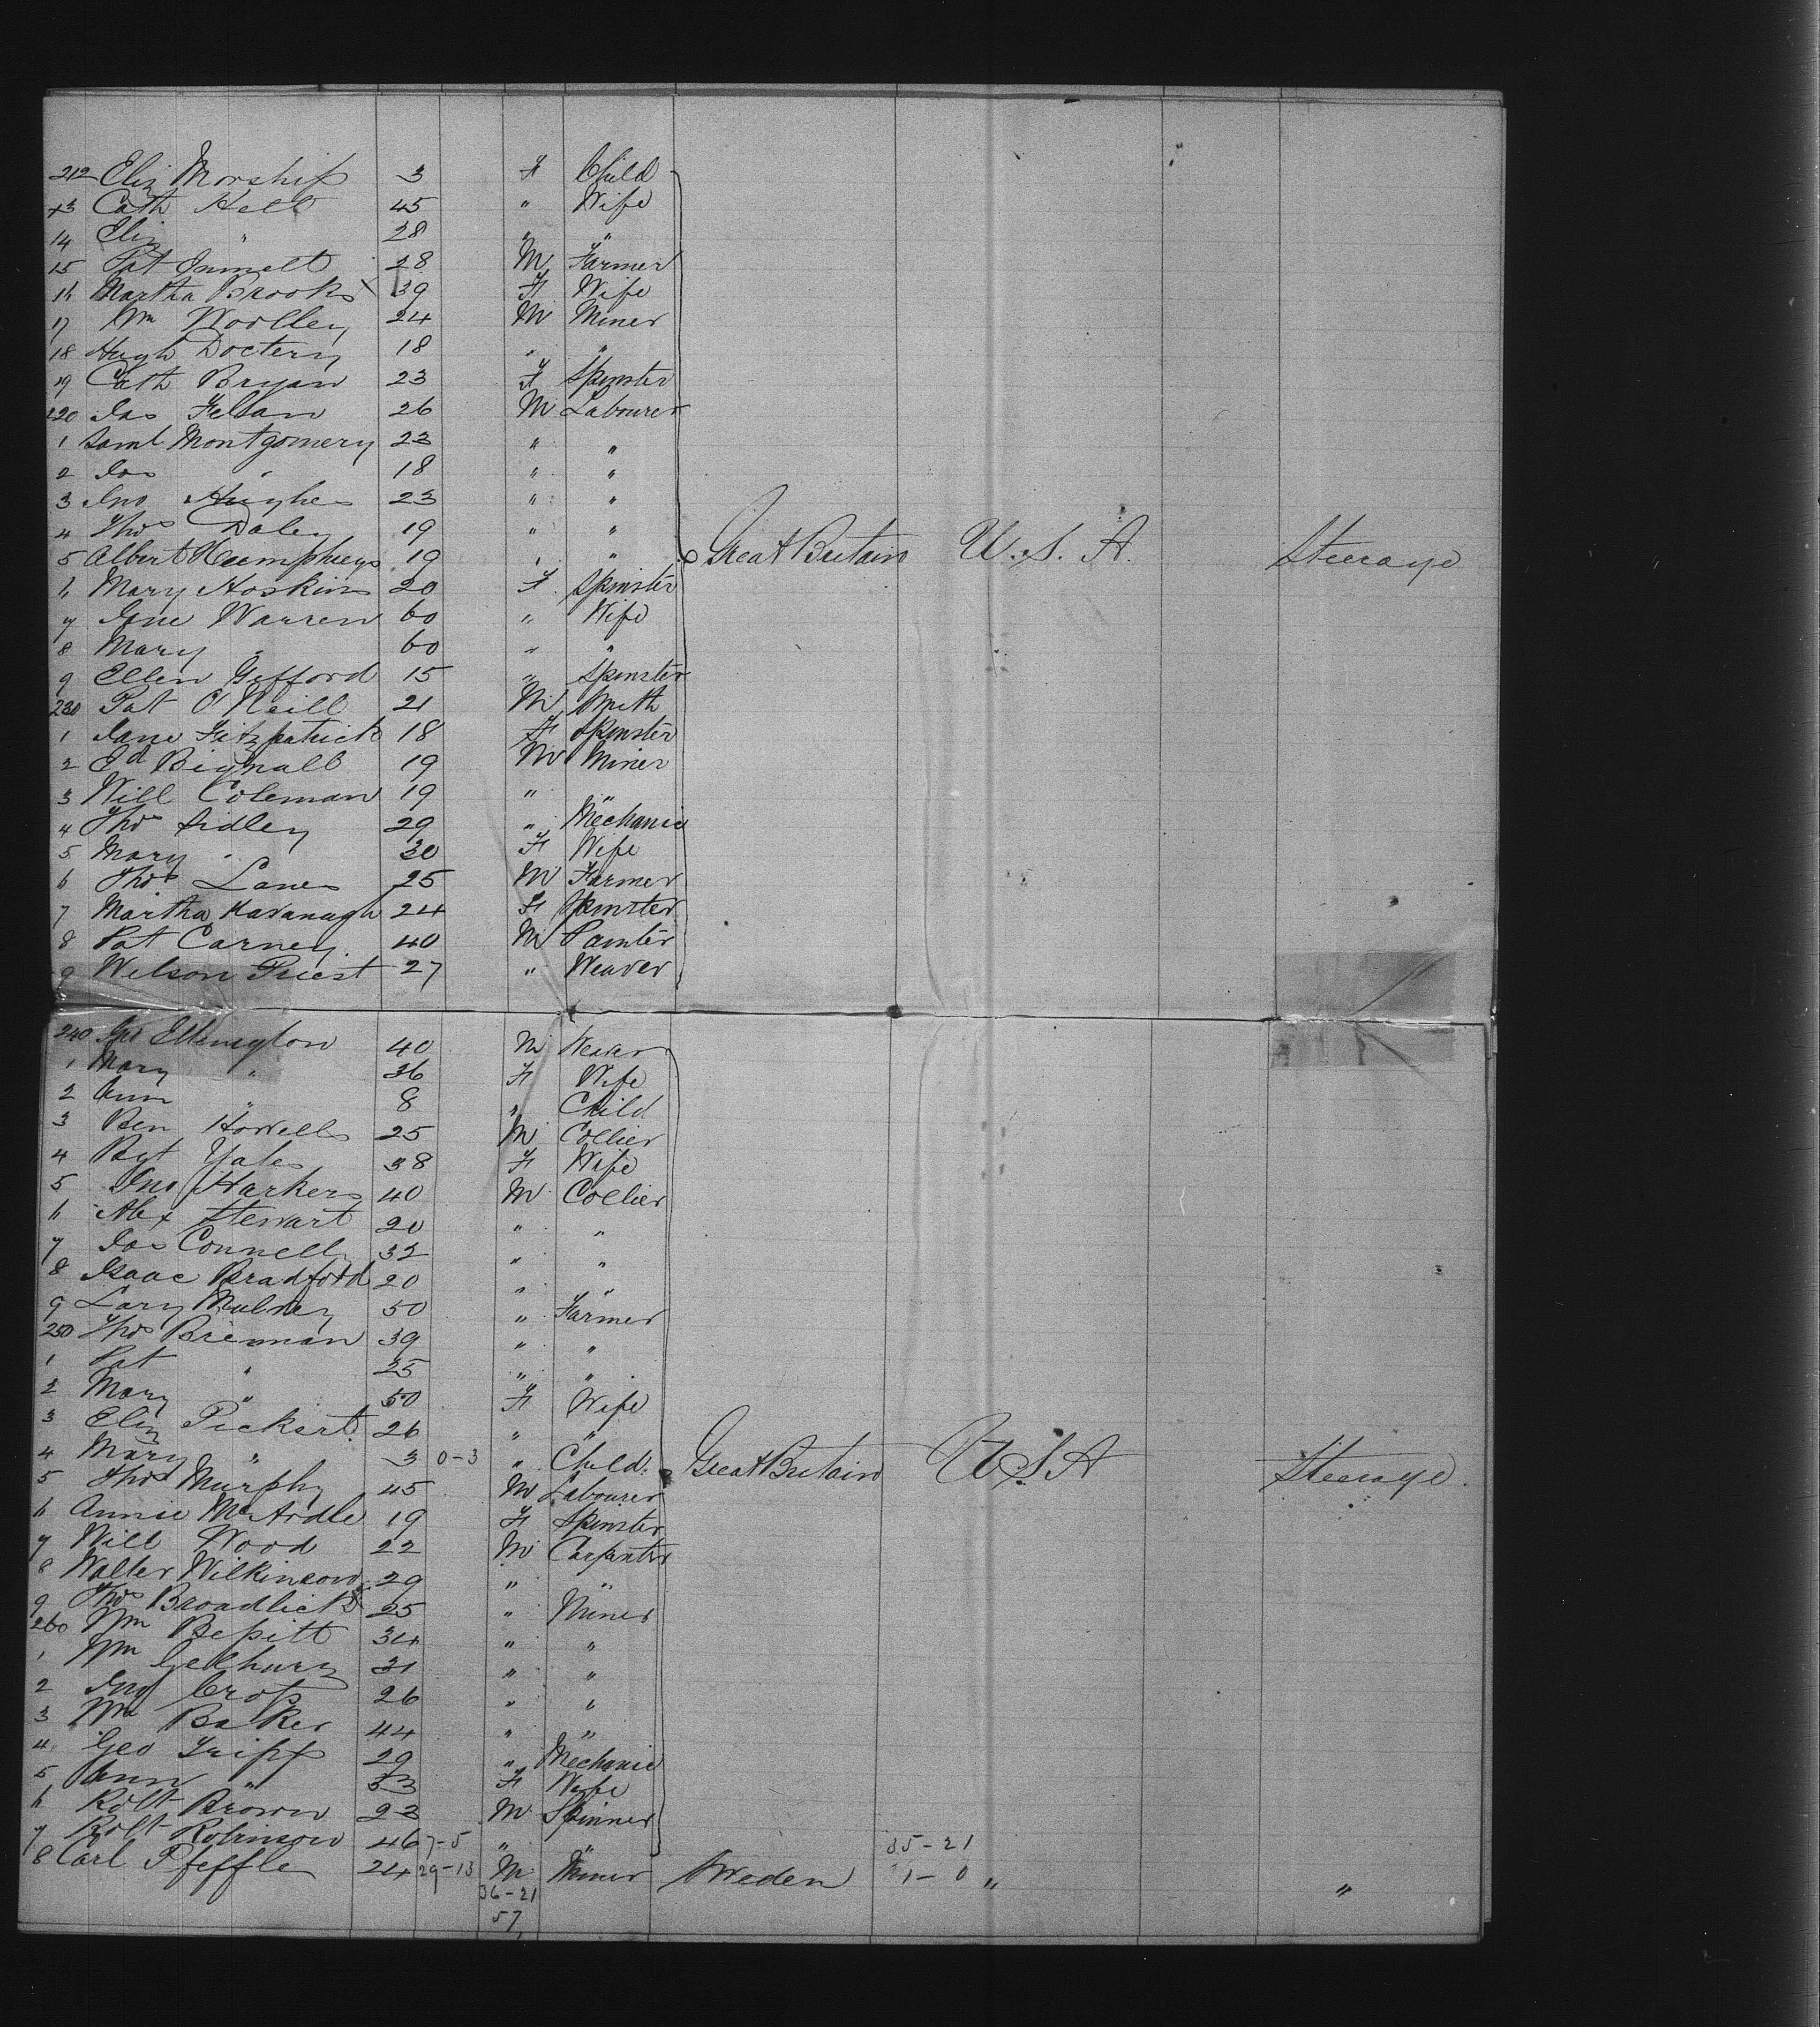 212 Eliz Morship 3 F Child
13 Cath Hell 45 " Wife
14 Eliz " 28 " "
15 Pat 28 M Farmer
16 Martha Brooks 39 F Wife
17 Wm Woolley 24 M Miner
18 Hugh Doctery 18 " "
19 Cath Bryan 23 F Spinster
220 Jas Feltan 26 M Labourer
1 Saml Montgomery 23 " "
2 Jas " 18 " "
3 Jno Hughes 23 " "
4 Thos Daley 19 " "
5 Albert Humphreys 19 " " Great Britain U.S.A. Steerage
6 Mary Hoskins 20 F Spinster
7 Jane Warren 60 " Wife
8 Mary " 60 " "
9 Ellen Gifford 15 " Spinster
230 Pat O'Neill 21 M Smith
1 Jane Fitzpatrick 18 F Spinster
2 Ed Bignall 19 M Miner
3 Will Coleman 19 " "
4 Thos Sidley 29 " Mechanic
5 Mary " 30 F Wife
6 Thos Lanes 25 M Farmer
7 Martha Kavanagh 24 F Spinster
8 Pat Carney 40 M Painter
9 Wilson Priest 27 " Weaver
240 Jno Ellengton 40 M Weaver
1 Mary " 36 F Wife
2 Ann " 8 " Child
3 Ben Howells 25 M Collier
4 Bgt Yates 38 F Wife
5 Jno Harkers 40 M Collier
6 Alex Stewart 20 " "
7 Jas Connelly 32 " "
8 Isaac Bradford 20 " "
9 Lary Mulvey 50 " Farmer
250 Thos Brennan 39 " "
1 Pat " 25 " "
2 Mary " 50 F Wife
3 Eliz Pickert 26 " "
4 Mary " 3 0-3 " Child Great Britain USA Steerage
5 Thos Murphy 45 M Labourer
6 Annie McArdle 19 F Spinster
7 Will Wood 22 M Carpenter
8 Walter Wilkinson 29 " "
9 Thos Broadlick 25 " Miner
260 Wm 34 " "
1 Wm 31 " "
2 Jno 26 " "
3 Wm Baker 44 " "
4 Geo Tripp 29 " Mechanic
5 Ann " 33 F Wife
6 Robt Brown 23 M Spinner
7 Robt Robinson 46 7-5 " " 35-21
8 Carl Pfeffle 24 29-13 M Miner Sweden 1-0 " "
36-21
57